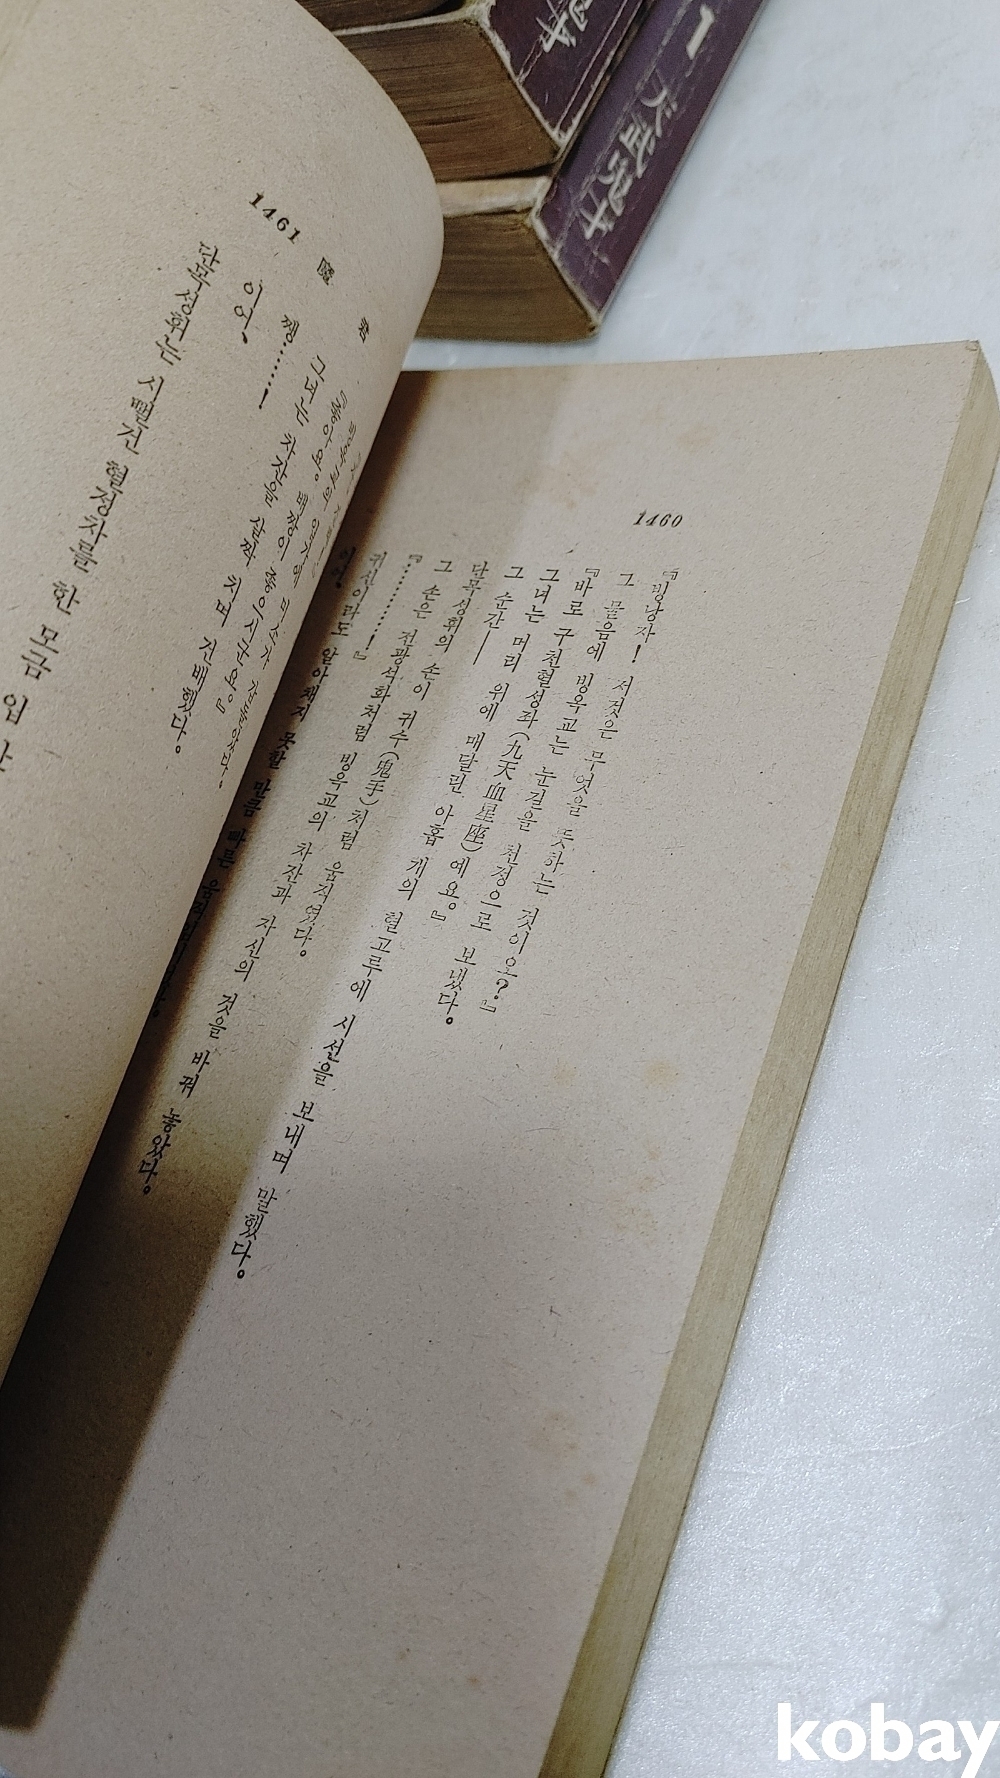 1
1460
『빙낭자! 저것은 무엇을 뜻하는 것이오?』
그 물음에 빙옥교는 눈길을 천정으로 보냈다.
『바로 구천혈성좌(九天血星座)예요.』
그녀는 머리 위에 매달린 아홉 개의 혈고루에 시선을 보내며 말했다.
그 순간――
단목성휘의 손이 귀수(鬼手)처럼 움직였다.
그 손은 전광석화처럼 빙옥교의 차잔과 자신의 것을 바꿔 놓았다.
『………!』
귀신이라도 알아채지 못할 만큼 빠른 움직임이었다.
이어,
1461 魔 君
미소가 감돌았다.
『좋아요. 배짱이 좋으시군요.』
그녀는 차잔을 살짝 치며 건배했다.
쨍……!
이어,
단목성휘는 시뻘건 혈정차를 한 모금 입
kobay